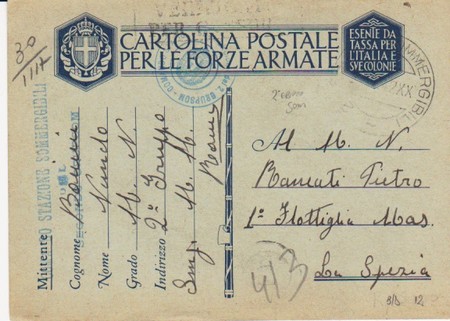 30
VERIFICATO
PER CENSURA
CARTOLINA POSTALE
PER LE FORZE ARMATE
ESENTE DA
TASSA PER
L'ITALIA E
SVE COLONIE
MMERGIBILI
XX
GRUPSOM
O STAZIONE SOMMERGIBILI
Mittente
Cognome
Nome
Grado M. N.
Indirizzo 2° Gruppo
Smg.
Al M. N.
Pietro
1° Flottiglia Mas.
La Spezia
413
12